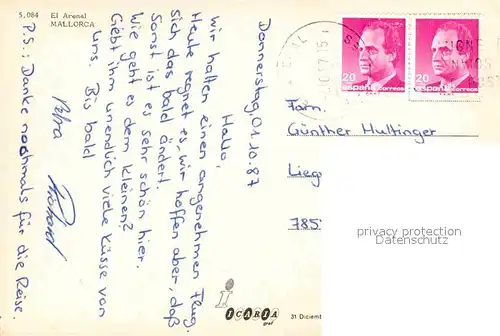 5.084 El Arenal
MALLORCA
Donnerstag, 01.10.87
Hallo,
wir hatten einen angenehmen Flug.
Heute regnet es, wir hoffen aber, daß
sich das bald ändert.
Sonst ist es sehr schön hier.
Wie geht es dem Kleinen?
Gebt ihm unendlich viele Küsse von
uns. Bis bald
Petra
P.S.: Danke nochmals für die Reise.
20
españa correos
20
españa correos
Fam.
Günther Hultinger
Lieg
785
persönlicher
Datenschutz
ICARIA
graf
31 Diciemb